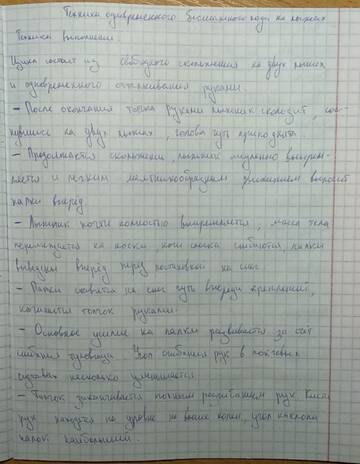 Техника одновременного бесшажного хода на лыжах
Техника выполнения:
Цикл состоит из свободного скольжения на двух лыжах
и одновременного отталкивания руками.
– После окончания толчка руками лыжник скользит, сог-
нувшись на двух лыжах, голова чуть приподнята
– Продолжается скольжение, лыжник медленно выпрям-
ляется и легким маятникообразным движением выносит
палки вперед.
– Лыжник почти полностью выпрямляется, масса тела
перемещается на носки, ноги слегка сгибаются, палки
выведены вперед перед постановкой на снег
– Палки ставятся на снег чуть впереди креплений,
начинается толчок руками.
– Основное усилие на палки развивается за счет
сгибания туловища. Угол сгибания рук в локтевых
суставах несколько уменьшается
– Толчок заканчивается полным разгибанием рук. Кисти
рук находятся на уровне не выше колен, угол наклона
палок наибольший.